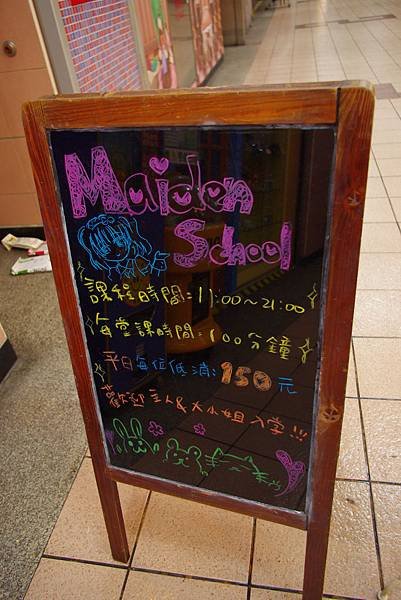 Maiden
School
課程時間:11:00～21:00
每堂課時間:100分鐘
平日每位低消:150元
歡迎主人&大小姐入學!!!